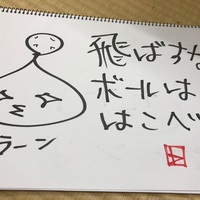 飛ばすな
ボールは
はこべ
ラーン